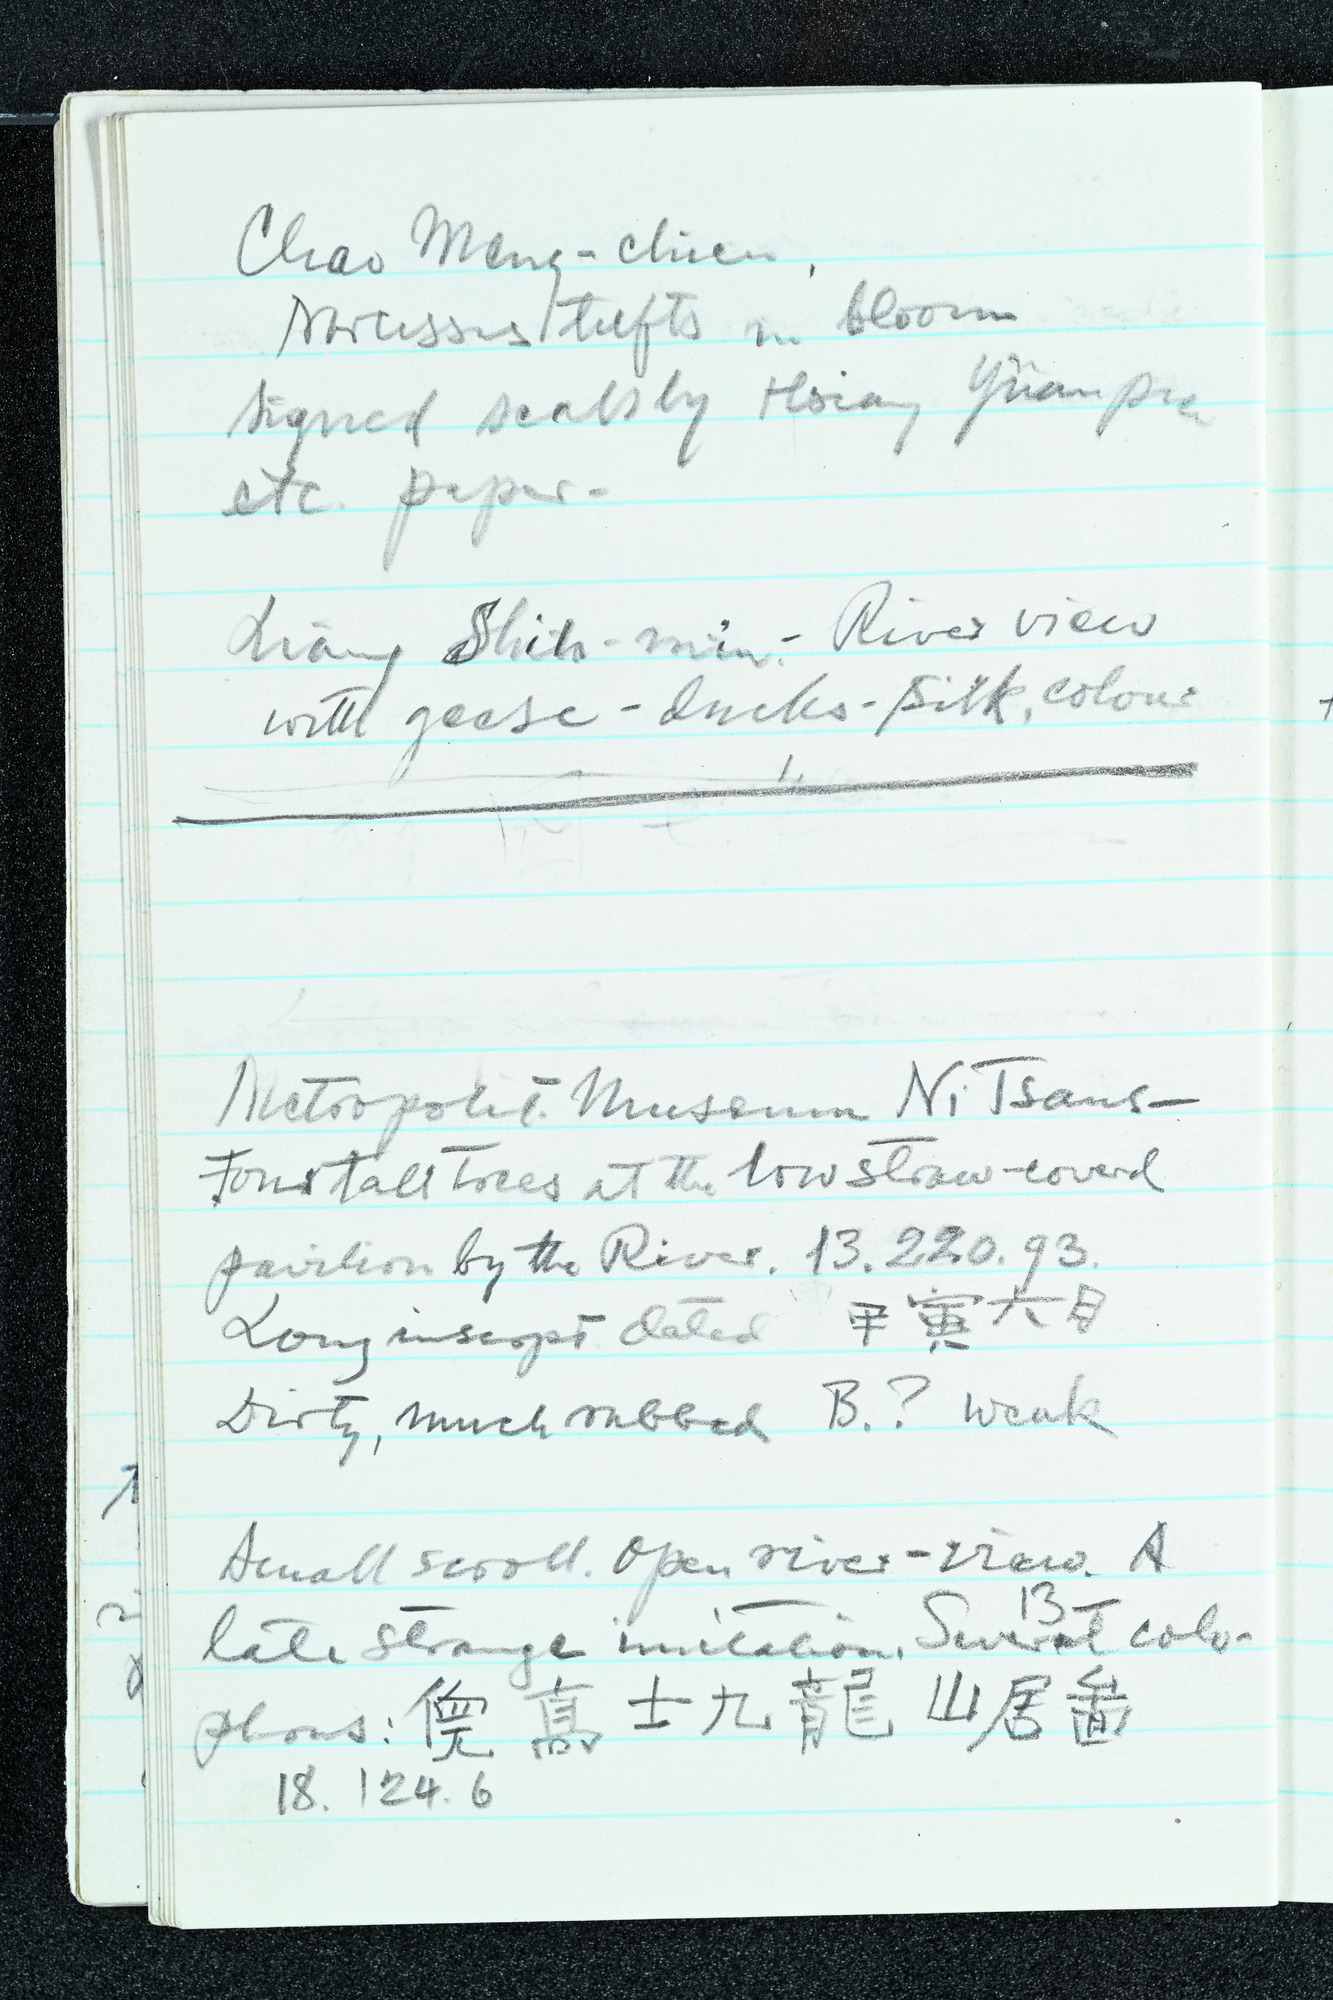 Chao Meng-chien,
Narcissus tufts in bloom
signed seals by Hsiang Yüan pien
etc. paper-
Liang Shih-min:- River view
with geese - ducks - silk, colour
Metropolit. Museum Ni Tsans-
Four tall trees at the low straw-coverd
pavilion by the River. 13.220.93.
Long inscript. dated 甲寅六月
Dirty, much rubbed B.? weak
Small scroll. Open river-view. A
late strange imitation. 13 colo-
phons: 倪高士九龍山居啚
18. 124. 6